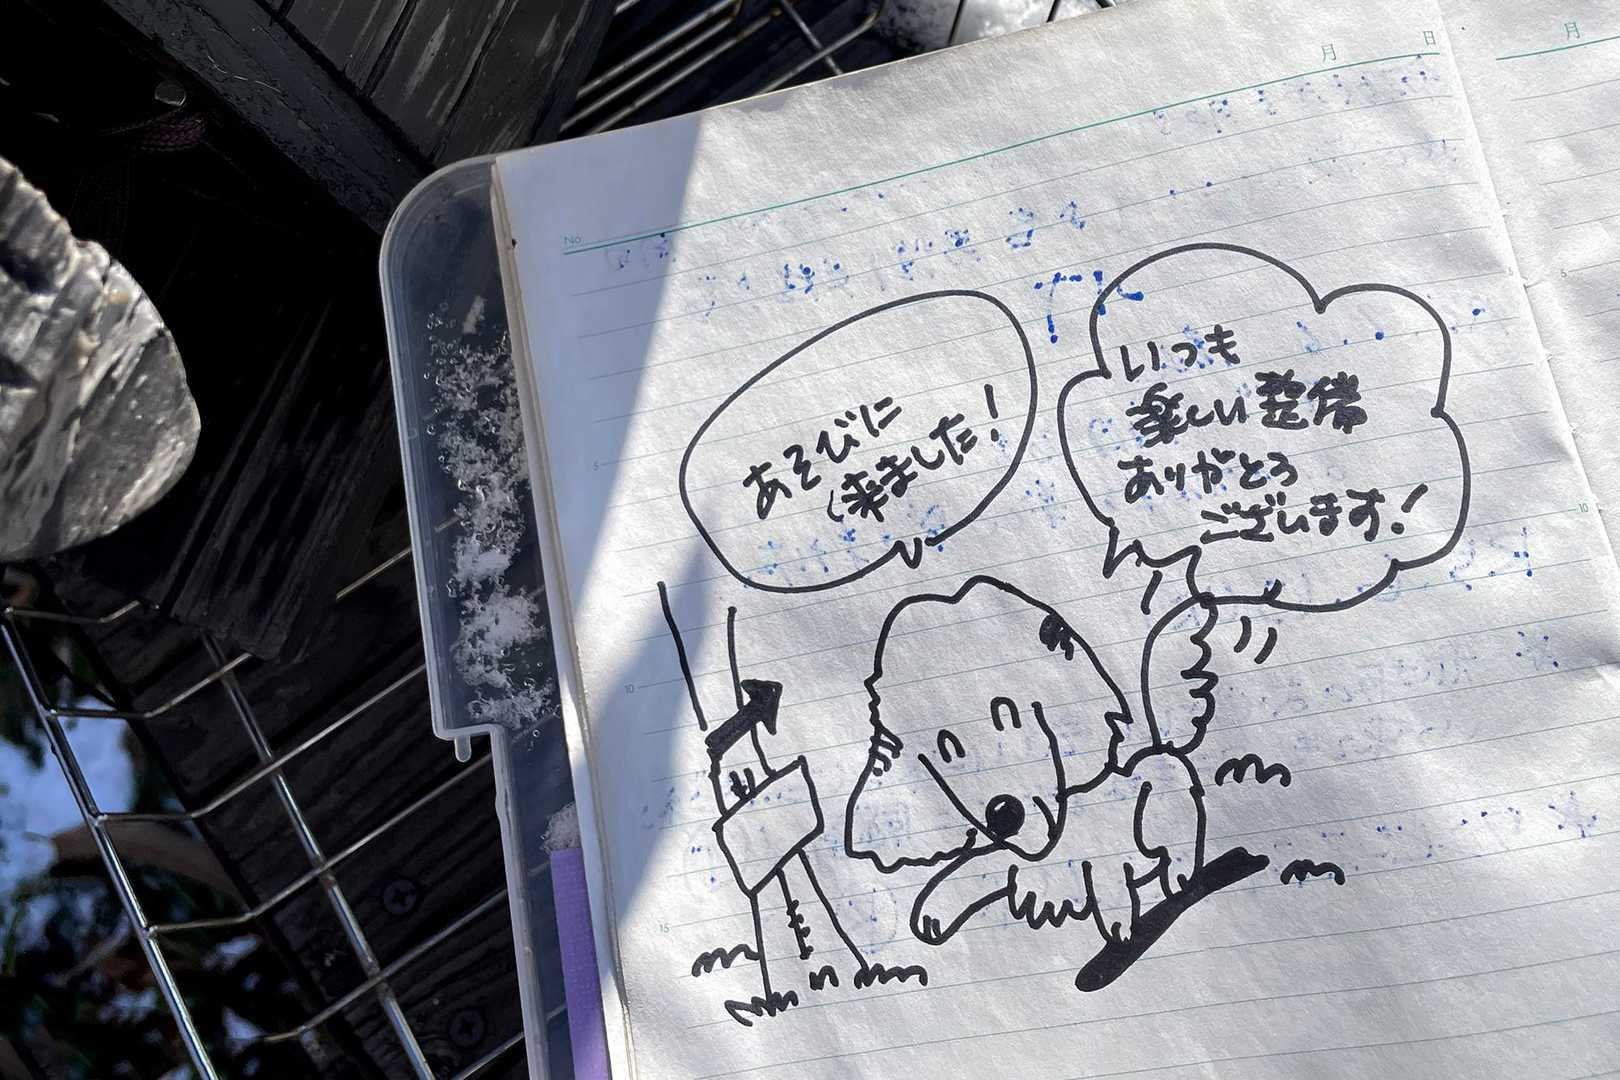 No
月 日
月
あそびに
来ました!
いつも
楽しい整備
ありがとう
ございます!
5
10
15
5
10